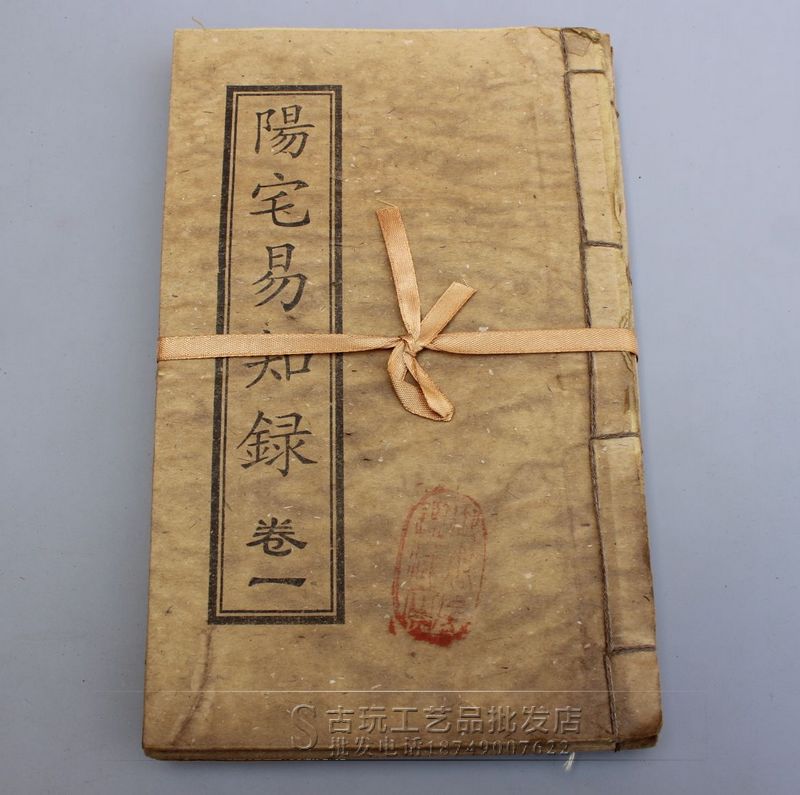 陽宅易知録
卷一
古玩工艺品批发店
批发电话18749007622